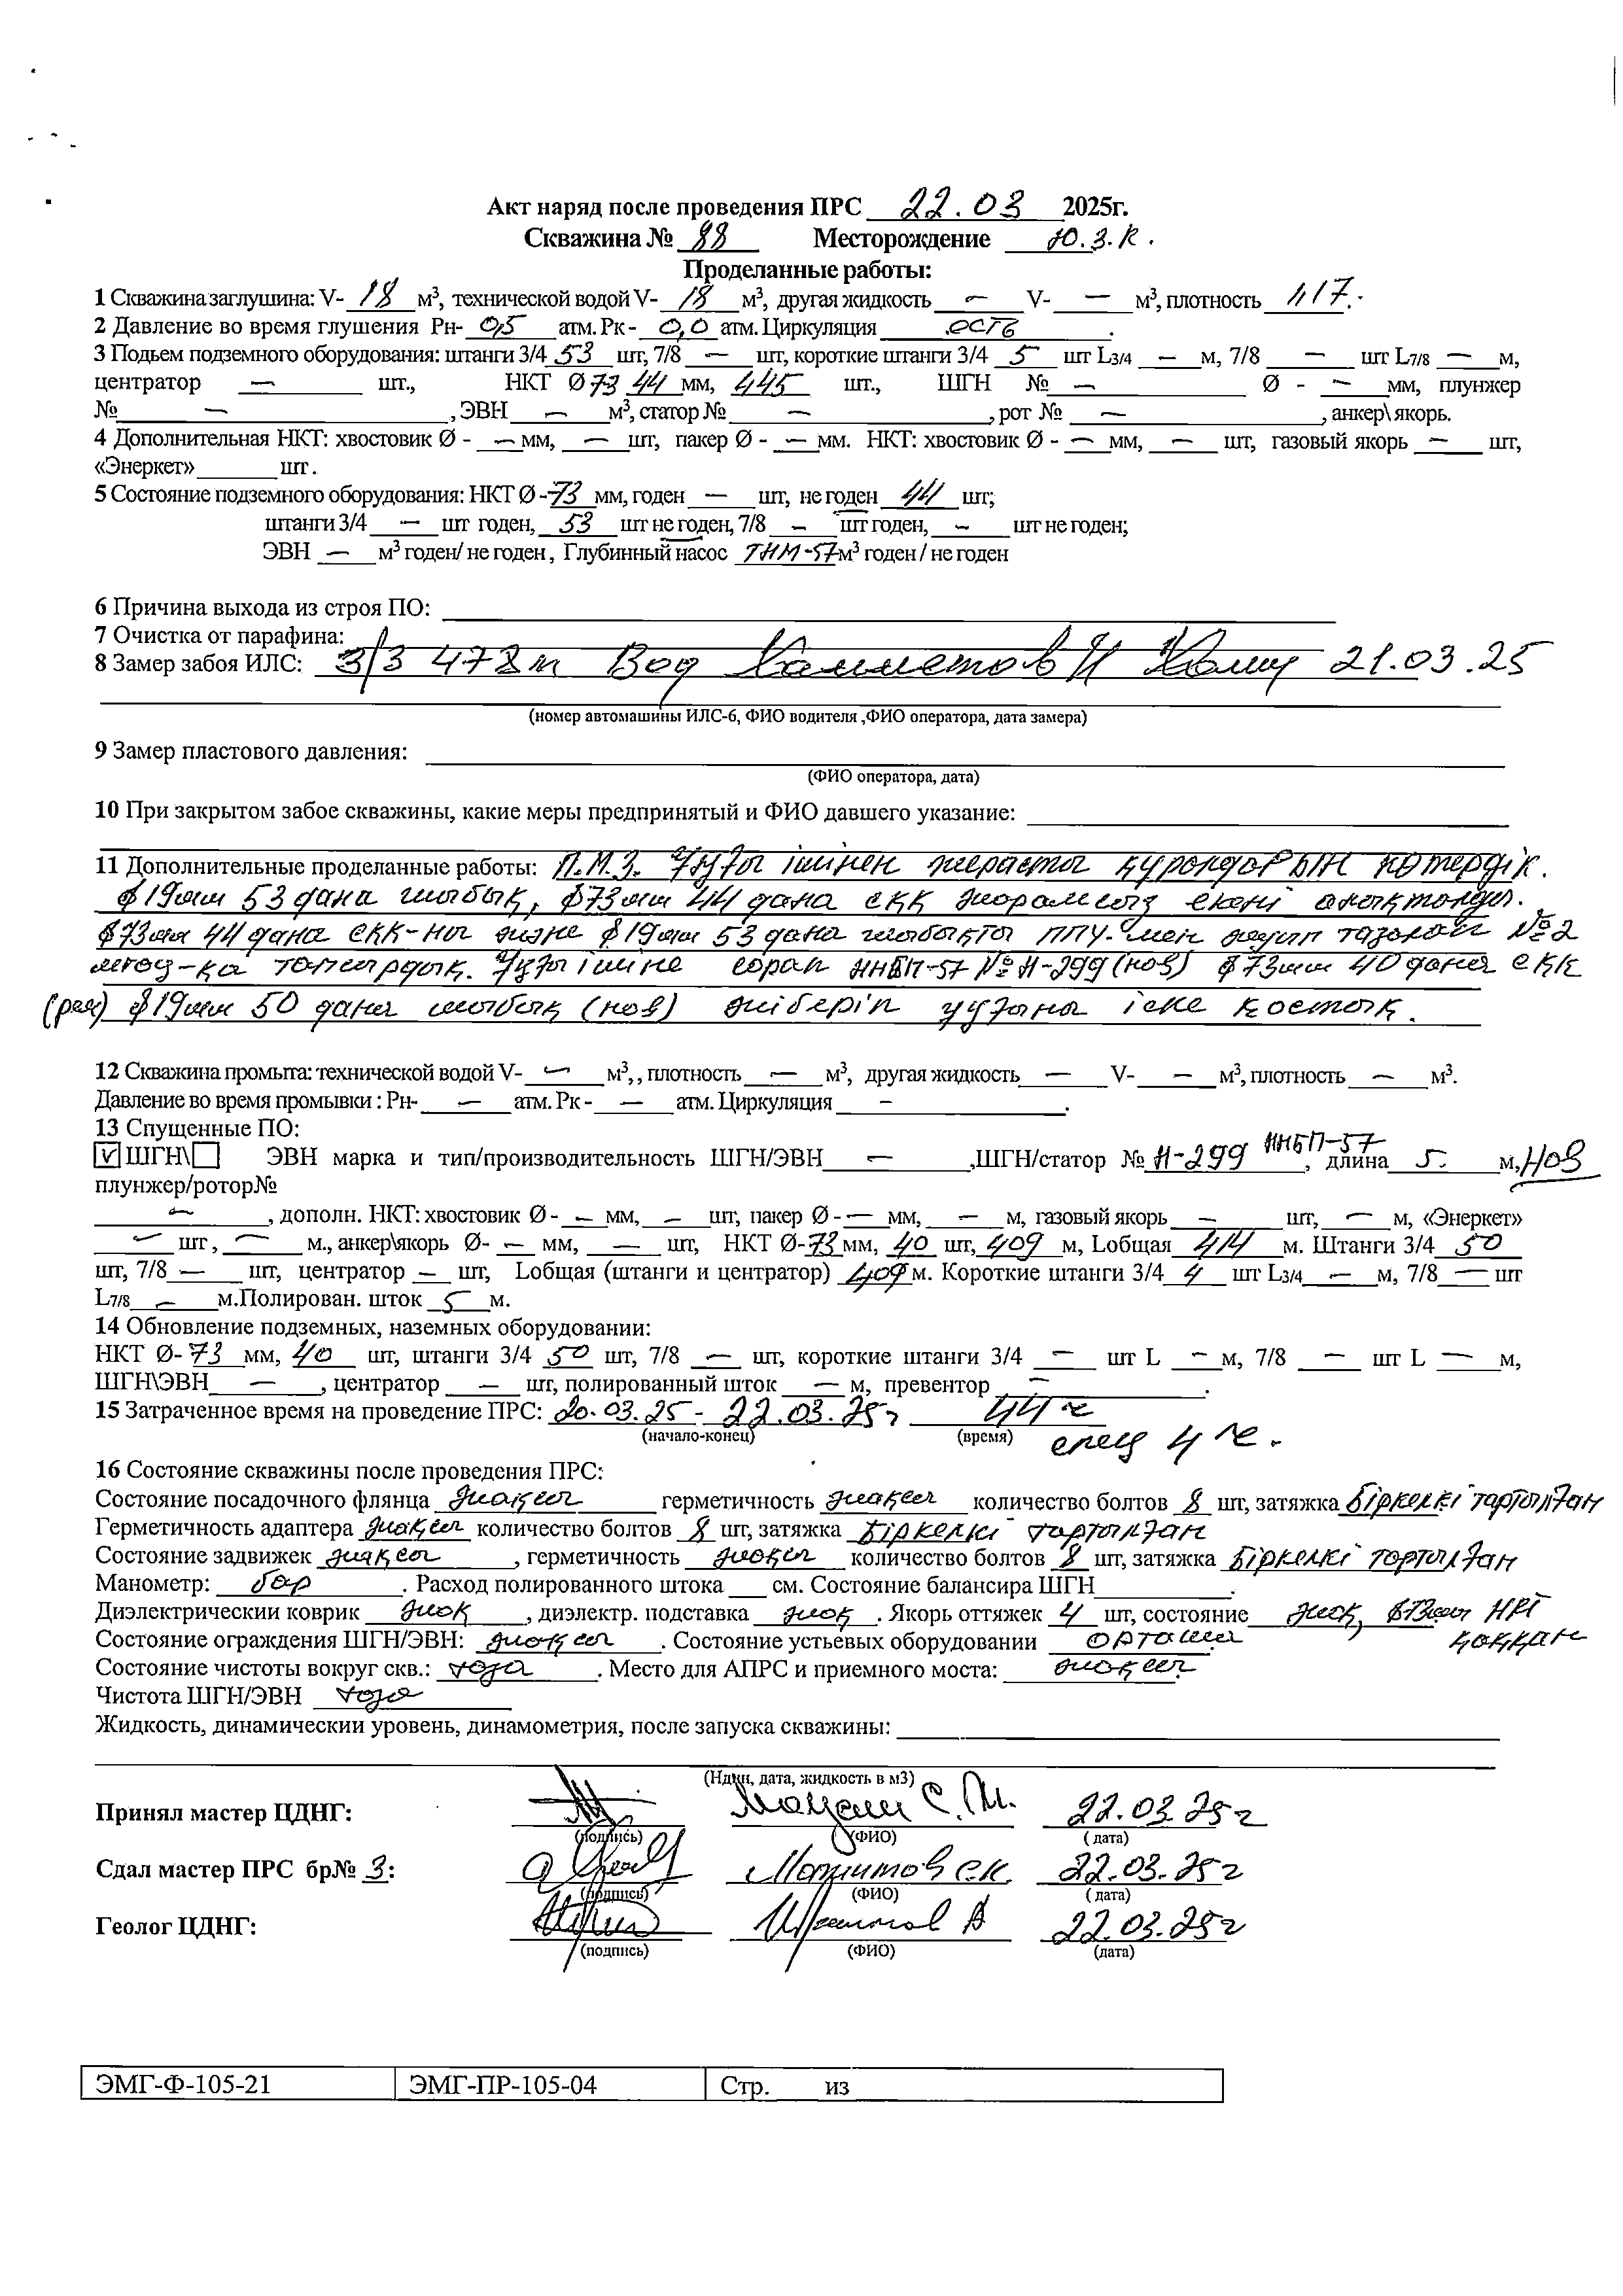 Акт наряд после проведения ПРС 22.03 2025г.
Скважина № 88 Месторождение Ю.З.К.
Проделанные работы:
1 Скважина заглушина: V- 18 м³, технической водой V- 18 м³, другая жидкость — V- — м³, плотность 1,17.
2 Давление во время глушения Рн- 0,5 атм. Рк - 0,0 атм. Циркуляция есть.
3 Подьем подземного оборудования: штанги 3/4 53 шт, 7/8 — шт, короткие штанги 3/4 5 шт L3/4 — м, 7/8 — шт L7/8 — м,
центратор — шт., НКТ Ø 73 44 мм, 445 шт., ШГН № — Ø - — мм, плунжер
№ — , ЭВН — м³, статор № — , рот № — , анкер\якорь.
4 Дополнительная НКТ: хвостовик Ø - — мм, — шт, пакер Ø - — мм. НКТ: хвостовик Ø - — мм, — шт, газовый якорь — шт,
«Энеркет» шт.
5 Состояние подземного оборудования: НКТ Ø -73 мм, годен — шт, не годен 44 шт;
штанги 3/4 — шт годен, 53 шт не годен, 7/8 – шт годен, – шт не годен;
ЭВН — м³ годен/ не годен, Глубинный насос ТНМ-57 м³ годен / не годен
6 Причина выхода из строя ПО:
7 Очистка от парафина:
8 Замер забоя ИЛС: З/З 478м Вод 21.03.25
(номер автомашины ИЛС-6, ФИО водителя ,ФИО оператора, дата замера)
9 Замер пластового давления:
(ФИО оператора, дата)
10 При закрытом забое скважины, какие меры предпринятый и ФИО давшего указание:
11 Дополнительные проделанные работы: П.М.З. Ұңғы ішінен жерасты құрондарғын көтердік.
ϕ19мм 53 дана штобық, ϕ73мм 44 дана СКҚ жорамсыз екені анықтолды.
ϕ73мм 44 дана СКҚ-ны және ϕ19мм 53 дана штобықты ППУ-мен жуып тазалап №2
мгод-қа тапсырдық. Ұңғы ішіне сорап ННБП-57 № Н-299 (нов) ϕ73мм 40 дана СКҚ
(рем) ϕ19мм 50 дана штобық (нов) жіберіп ұңғыны іске қостық.
12 Скважина промыта: технической водой V- — м³, , плотность — м³, другая жидкость — V- — м³, плотность — м³.
Давление во время промывки : Рн- — атм. Рк - — атм. Циркуляция – .
13 Спущенные ПО:
☑ ШГН\☐ ЭВН марка и тип/производительность ШГН/ЭВН — ,ШГН/статор № Н-299 ННБП-57, длина 5. м, нов
плунжер/ротор№
— , дополн. НКТ: хвостовик Ø - — мм, — шт, пакер Ø - — мм, — м, газовый якорь — шт, — м, «Энеркет»
— шт , — м., анкер\якорь Ø- — мм, — шт, НКТ Ø-73 мм, 40 шт, 409 м, Lобщая 414 м. Штанги 3/4 50
шт, 7/8 — шт, центратор — шт, Lобщая (штанги и центратор) 409 м. Короткие штанги 3/4 4 шт L3/4 — м, 7/8 — шт
L7/8 — м.Полирован. шток 5 м.
14 Обновление подземных, наземных оборудовании:
НКТ Ø- 73 мм, 40 шт, штанги 3/4 50 шт, 7/8 — шт, короткие штанги 3/4 — шт L — м, 7/8 — шт L — м,
ШГН\ЭВН — , центратор — шт, полированный шток — м, превентор — .
15 Затраченное время на проведение ПРС: 20.03.25 - 22.03.25г 44 ч
(начало-конец) (время) спец 4 ч.
16 Состояние скважины после проведения ПРС:
Состояние посадочного флянца жақсы герметичность жақсы количество болтов 8 шт, затяжка біркелкі тартылған
Герметичность адаптера жақсы количество болтов 8 шт, затяжка біркелкі тартылған
Состояние задвижек жақсы , герметичность жақсы количество болтов 8 шт, затяжка біркелкі тартылған
Манометр: бар . Расход полированного штока см. Состояние балансира ШГН .
Диэлектрический коврик жоқ , диэлектр. подставка жоқ . Якорь оттяжек 4 шт, состояние жоқ, ϕ73мм НКТ
Состояние ограждения ШГН/ЭВН: жақсы . Состояние устьевых оборудовании орташа қаққан
Состояние чистоты вокруг скв.: таза . Место для АПРС и приемного моста: жақсы .
Чистота ШГН/ЭВН таза
Жидкость, динамический уровень, динамометрия, после запуска скважины:
(Ндин, дата, жидкость в м3)
Принял мастер ЦДНГ: С.М. 22.03.25г
(подпись) (ФИО) ( дата)
Сдал мастер ПРС бр№ 3: С.К. 22.03.25г
(подпись) (ФИО) ( дата)
Геолог ЦДНГ: А 22.03.25г
(подпись) (ФИО) (дата)
ЭМГ-Ф-105-21 ЭМГ-ПР-105-04 Стр. из